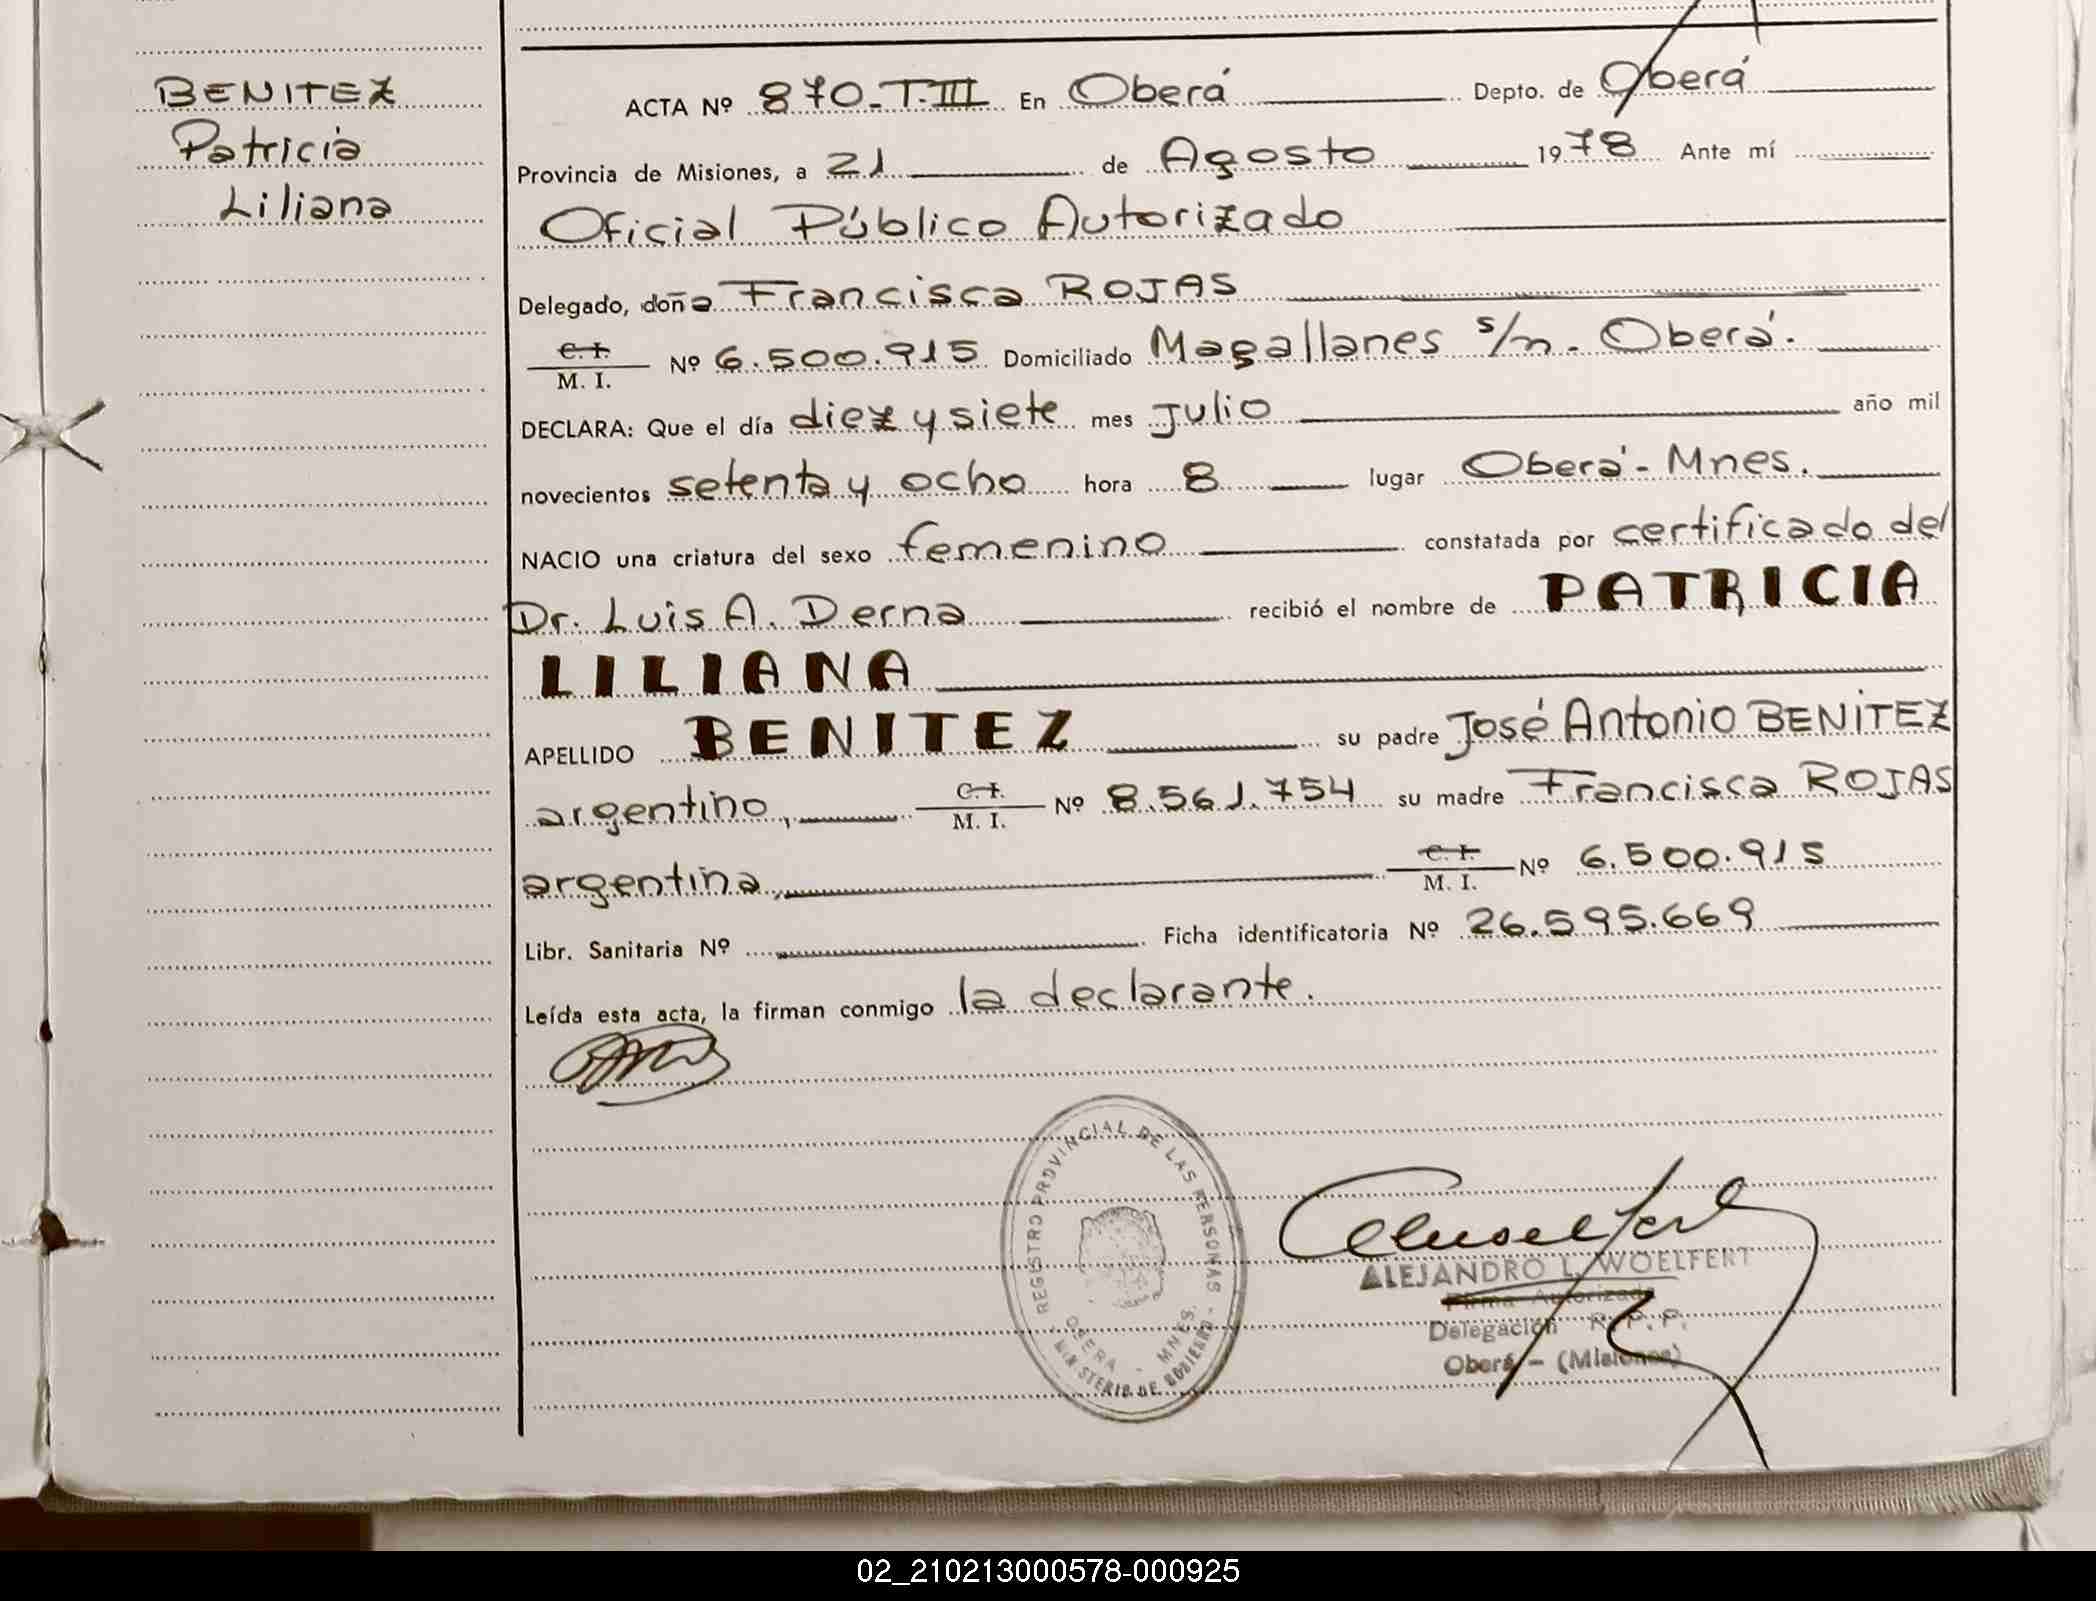 BENITEZ
Patricia
Liliana
ACTA Nº 870-T.III En Oberá Depto. de Oberá
Provincia de Misiones, a 21 de Agosto 1978 Ante mí
Oficial Público Autorizado
Delegado, doña Francisca ROJAS
C. I.
M. I. Nº 6.500.915 Domiciliado Magallanes s/n. Oberá.
DECLARA: Que el día diez y siete mes Julio año mil
novecientos setenta y ocho hora 8 lugar Oberá - Mnes.
NACIO una criatura del sexo femenino constatada por certificado del
Dr. Luis A. Derna recibió el nombre de PATRICIA
LILIANA
APELLIDO BENITEZ su padre José Antonio BENITEZ
argentino, C. I.
M. I. Nº 8.561.754 su madre Francisca ROJAS
argentina, C. I.
M. I. Nº 6.500.915
Libr. Sanitaria Nº Ficha identificatoria Nº 26.595.669
Leída esta acta, la firman conmigo la declarante.
REGISTRO PROVINCIAL DE LAS PERSONAS
MINISTERIO DE GOBIERNO
OBERA - MNES.
ALEJANDRO L. WOELFERT
Firma Autorizada
Delegación R. P. P.
Oberá - (Misiones)
02_210213000578-000925